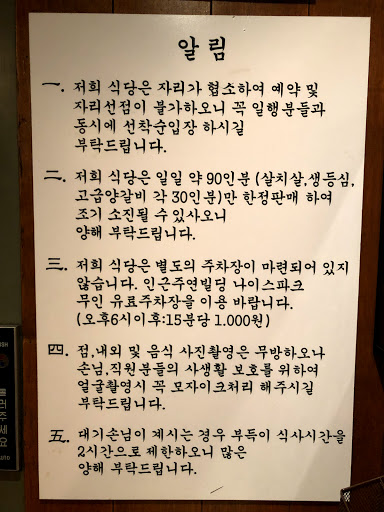 알림
一. 저희 식당은 자리가 협소하여 예약 및
자리선점이 불가하오니 꼭 일행분들과
동시에 선착순입장 하시길
부탁드립니다.
二. 저희 식당은 일일 약90인분(살치살,생등심,
고급양갈비 각 30인분)만 한정판매 하여
조기 소진될 수 있사오니
양해 부탁드립니다.
三. 저희 식당은 별도의 주차장이 마련되어 있지
않습니다. 인근주연빌딩 나이스파크
무인 유료주차장을 이용 바랍니다.
(오후6시이후:15분당 1.000원)
四. 점,내외 및 음식 사진촬영은 무방하오나
손님,직원분들의 사생활 보호를 위하여
얼굴촬영시 꼭 모자이크처리 해주시길
부탁드립니다.
五. 대기손님이 계시는 경우 부득이 식사시간을
2시간으로 제한하오니 많은
양해 부탁드립니다.